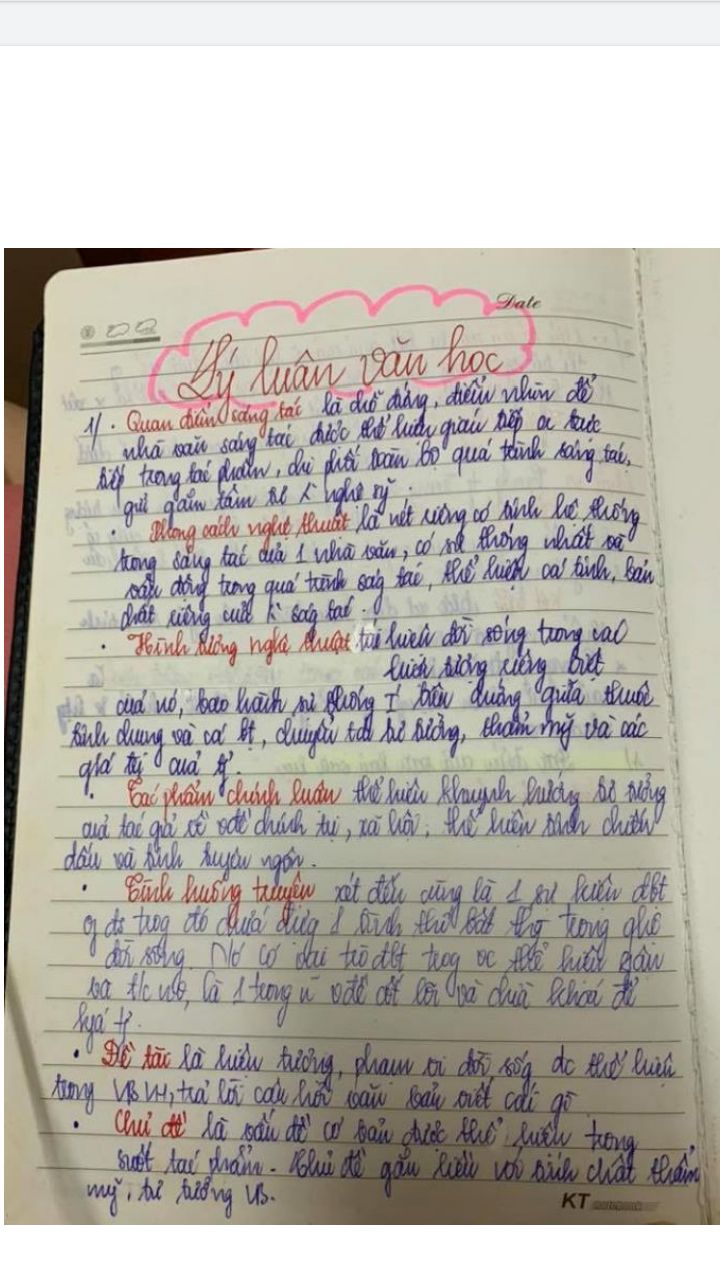 Date
Lý luận văn học
1/. Quan điểm sáng tác là chỗ đứng, điểm nhìn để
nhà văn sáng tác được thể hiện gián tiếp or trực
tiếp trong tác phẩm, chi phối toàn bộ quá trình sáng tác,
gửi gắm tâm sự nghệ sỹ.
. Phong cách nghệ thuật là nét riêng có tính hệ thống
trong sáng tác của 1 nhà văn, có sự thống nhất và
vận động trong quá trìnhság tác, thể hiện cá tính, bản
chất riêng củaság tác.
. Hình tượng nghệ thuật tái hiện đời sống trong
hiện tượng riêng biệt
của nó, bao hành sự trong
tính chung và cá, chuyển tải tư tưởng, thẩm mỹ và các
giá trị của
. Tác phẩm chính luận thể hiện khuynh hướng tư tưởng
của tác giả về vđề chính trị, xã hội, thể hiện tính chiến
đấu và tính tuyên ngôn.
. Tình huống truyện xét đến cùng là 1 sự kiện đbt
đs trog đó chứa 1 tình thế bất thg trong
đời sống. Nó có vai trò đbt trog vc thể hiện
là 1 trong n vđề cốt lõi và chìa khoá để
. Đề tài là hiện tượng, phạm vi đời sốg dc thể hiện
trong VB VH, trả lời câu hỏi văn bản viết cái gì
. Chủ đề là vấn đề cơ bản được thể hiện trong
suốt tác phẩm. Chủ đề gắn liền với tính chất thẩm
mỹ, tư tưởng VB.
KT notebook